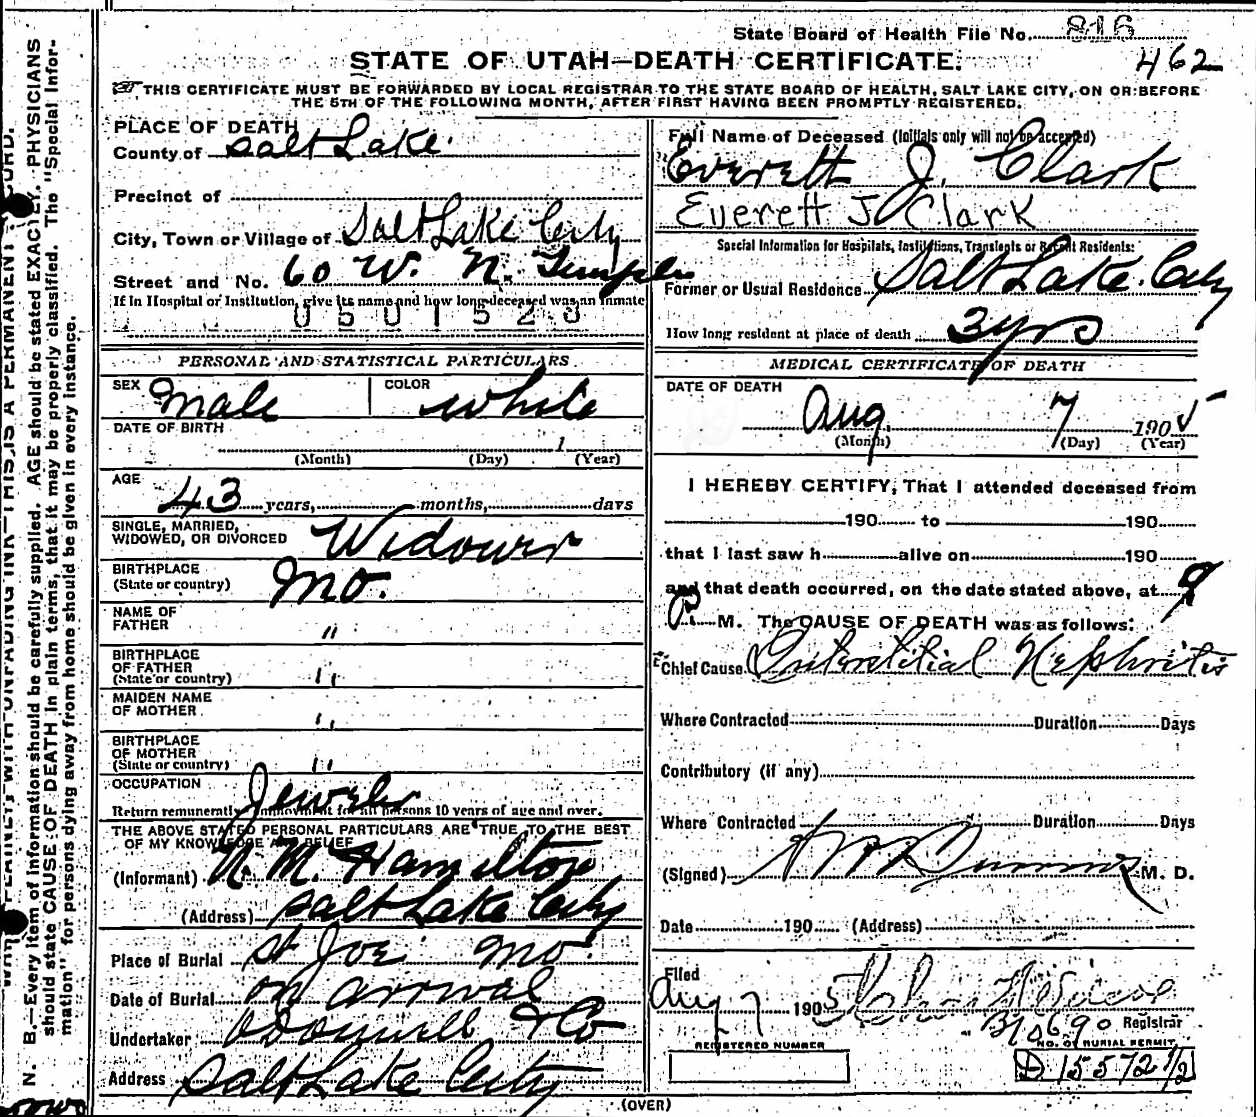 State Board of Health File No. 816
462
STATE OF UTAH—DEATH CERTIFICATE.
THIS CERTIFICATE MUST BE FORWARDED BY LOCAL REGISTRAR TO THE STATE BOARD OF HEALTH, SALT LAKE CITY, ON OR BEFORE
THE 5TH OF THE FOLLOWING MONTH, AFTER FIRST HAVING BEEN PROMPTLY REGISTERED.
PLACE OF DEATH
County of Salt Lake.
Precinct of
City, Town or Village of Salt Lake City
Street and No. 60 W. N. Temple
If in Hospital or Institution, give its name and how long deceased was an inmate
0501528
PERSONAL AND STATISTICAL PARTICULARS
SEX Male COLOR White
DATE OF BIRTH
1
(Month) (Day) (Year)
AGE
43 years, months, days
SINGLE, MARRIED,
WIDOWED, OR DIVORCED Widower
BIRTHPLACE
(State or country) Mo.
NAME OF
FATHER "
BIRTHPLACE
OF FATHER
(State or country) "
MAIDEN NAME
OF MOTHER "
BIRTHPLACE
OF MOTHER
(State or country) "
OCCUPATION Jeweler
Return remunerative employment for all persons 10 years of age and over.
THE ABOVE STATED PERSONAL PARTICULARS ARE TRUE TO THE BEST
OF MY KNOWLEDGE AND BELIEF
(Informant) N. M. Hamilton
(Address) Salt Lake City
Place of Burial St Joe Mo.
Date of Burial on arrival
Undertaker O'Donnell & Co
Address Salt Lake City
Full Name of Deceased (Initials only will not be accepted)
Everett J. Clark
Everett J Clark
Special Information for Hospitals, Institutions, Transients or Recent Residents:
Former or Usual Residence Salt Lake City
How long resident at place of death 3 yrs
MEDICAL CERTIFICATE OF DEATH
DATE OF DEATH
Aug. 7 1905
(Month) (Day) (Year)
I HEREBY CERTIFY, That I attended deceased from
190 to 190
that I last saw h alive on 190
and that death occurred, on the date stated above, at 9
P. M. The CAUSE OF DEATH was as follows:
Chief Cause Interstitial Nephritis
Where Contracted Duration Days
Contributory (if any)
Where Contracted Duration Days
(Signed) M. D.
Date 190 (Address)
Filed
Aug 7 1905
Registrar
REGISTERED NUMBER
NO. OF BURIAL PERMIT
D 15572 1/2
(OVER)
N. B.—Every item of information should be carefully supplied. AGE should be stated EXACTLY. PHYSICIANS
should state CAUSE OF DEATH in plain terms, that it may be properly classified. The "Special Infor-
mation" for persons dying away from home should be given in every instance.